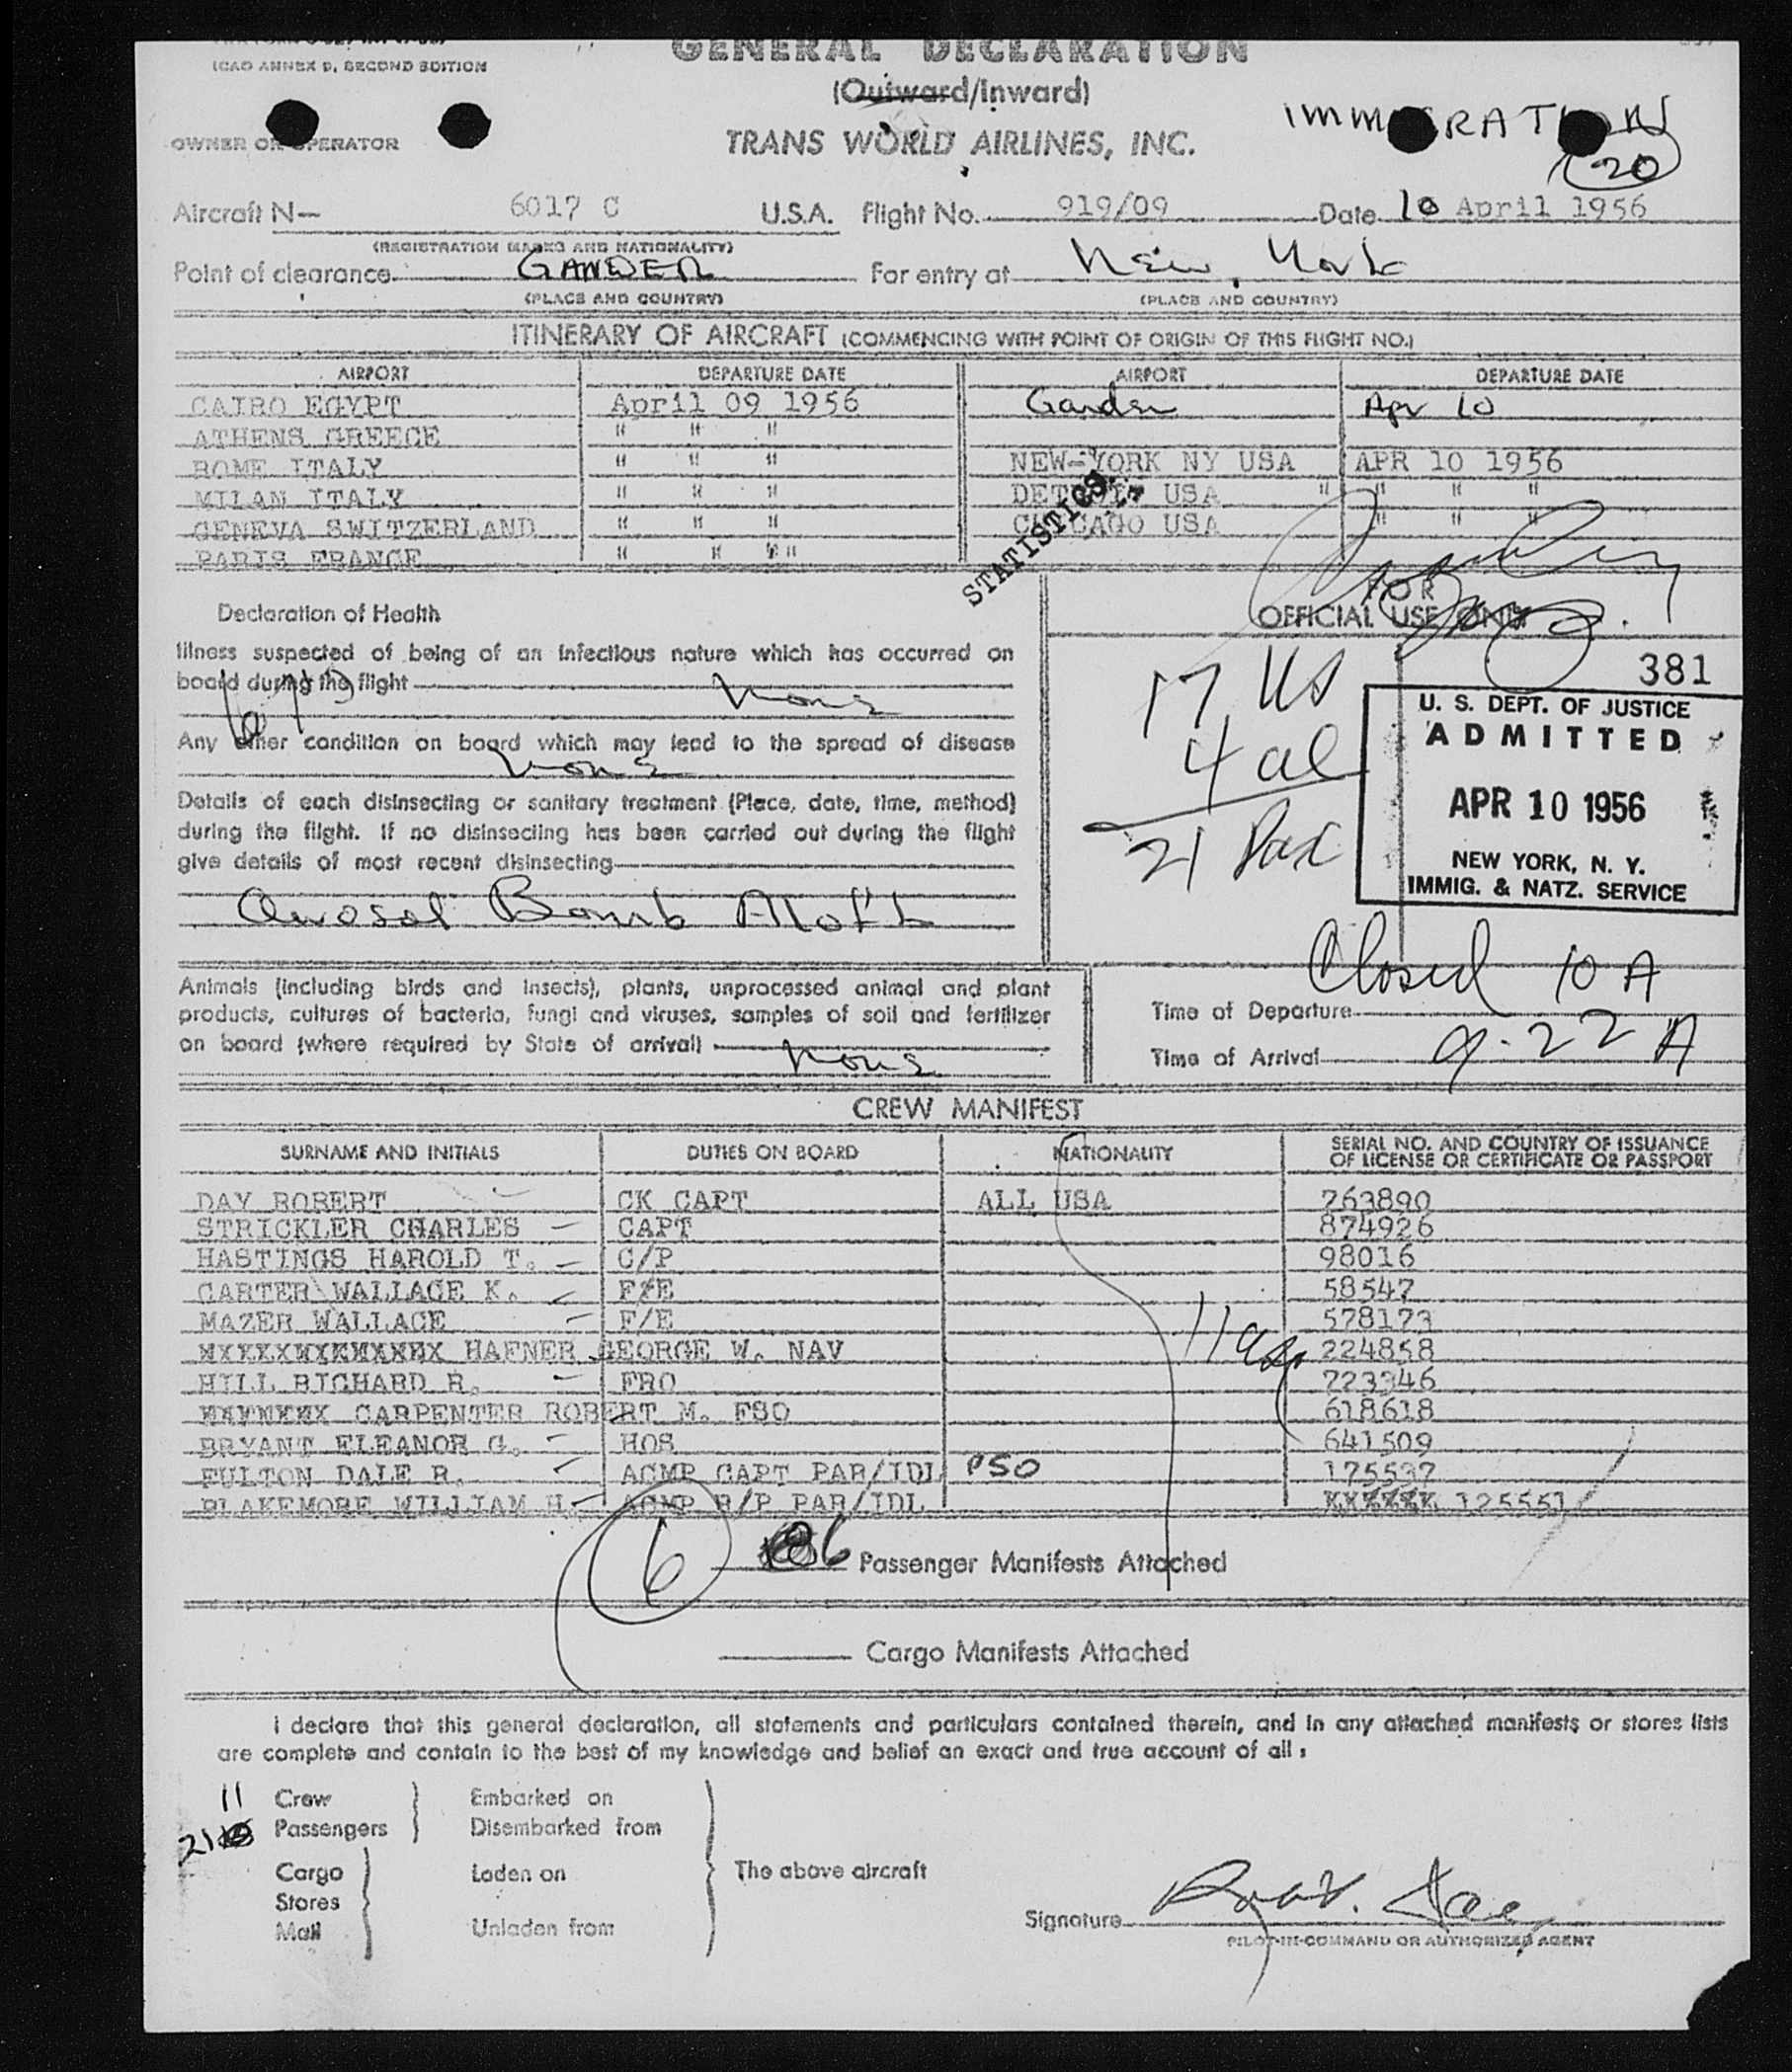 ICAO ANNEX 9, SECOND EDITION
GENERAL DECLARATION
(Outward/Inward)
IMMIGRATION
20
OWNER OR OPERATOR
TRANS WORLD AIRLINES, INC.
Aircraft N— 6017 C U.S.A. Flight No. 919/09 Date 10 April 1956
(REGISTRATION MARKS AND NATIONALITY)
Point of clearance GANDER For entry at New York
(PLACE AND COUNTRY) (PLACE AND COUNTRY)
ITINERARY OF AIRCRAFT (COMMENCING WITH POINT OF ORIGIN OF THIS FLIGHT NO.)
AIRPORT DEPARTURE DATE AIRPORT DEPARTURE DATE
CAIRO EGYPT April 09 1956 Gander Apr 10
ATHENS GREECE " " "
ROME ITALY " " " NEW-YORK NY USA APR 10 1956
MILAN ITALY " " " DETROIT USA " " " "
GENEVA SWITZERLAND " " " CHICAGO USA " " "
PARIS FRANCE " " "
STATISTICS
Declaration of Health
FOR
OFFICIAL USE ONLY
Illness suspected of being of an infectious nature which has occurred on
board during the flight None
381
17 US
4 al
21 Pax
U. S. DEPT. OF JUSTICE
ADMITTED
APR 10 1956
NEW YORK, N. Y.
IMMIG. & NATZ. SERVICE
Any other condition on board which may lead to the spread of disease
None
Details of each disinsecting or sanitary treatment (Place, date, time, method)
during the flight. If no disinsecting has been carried out during the flight
give details of most recent disinsecting
Aerosol Bomb Aloft
Closed 10 A
Animals (including birds and insects), plants, unprocessed animal and plant
products, cultures of bacteria, fungi and viruses, samples of soil and fertilizer
on board (where required by State of arrival) None
Time of Departure
Time of Arrival 9-22 A
CREW MANIFEST
SURNAME AND INITIALS DUTIES ON BOARD NATIONALITY SERIAL NO. AND COUNTRY OF ISSUANCE
OF LICENSE OR CERTIFICATE OR PASSPORT
DAY ROBERT CK CAPT ALL USA 263890
STRICKLER CHARLES CAPT 874926
HASTINGS HAROLD T. C/P 98016
CARTER WALLACE K. F/E 58547
MAZER WALLACE F/E 578173
HAFNER GEORGE W. NAV 224858
HILL RICHARD R. FRO 223346
CARPENTER ROBERT M. FSO 618618
BRYANT ELEANOR G. HOS 641509
FULTON DALE R. ACMP CAPT PAR/IDL PSO 175537
BLAKEMORE WILLIAM H. ACMP R/P PAR/IDL 125551
6 6 Passenger Manifests Attached
Cargo Manifests Attached
I declare that this general declaration, all statements and particulars contained therein, and in any attached manifests or stores lists
are complete and contain to the best of my knowledge and belief an exact and true account of all :
11 Crew Embarked on
21 Passengers Disembarked from
Cargo Laden on The above aircraft
Stores
Mail Unladen from
Signature
PILOT-IN-COMMAND OR AUTHORIZED AGENT